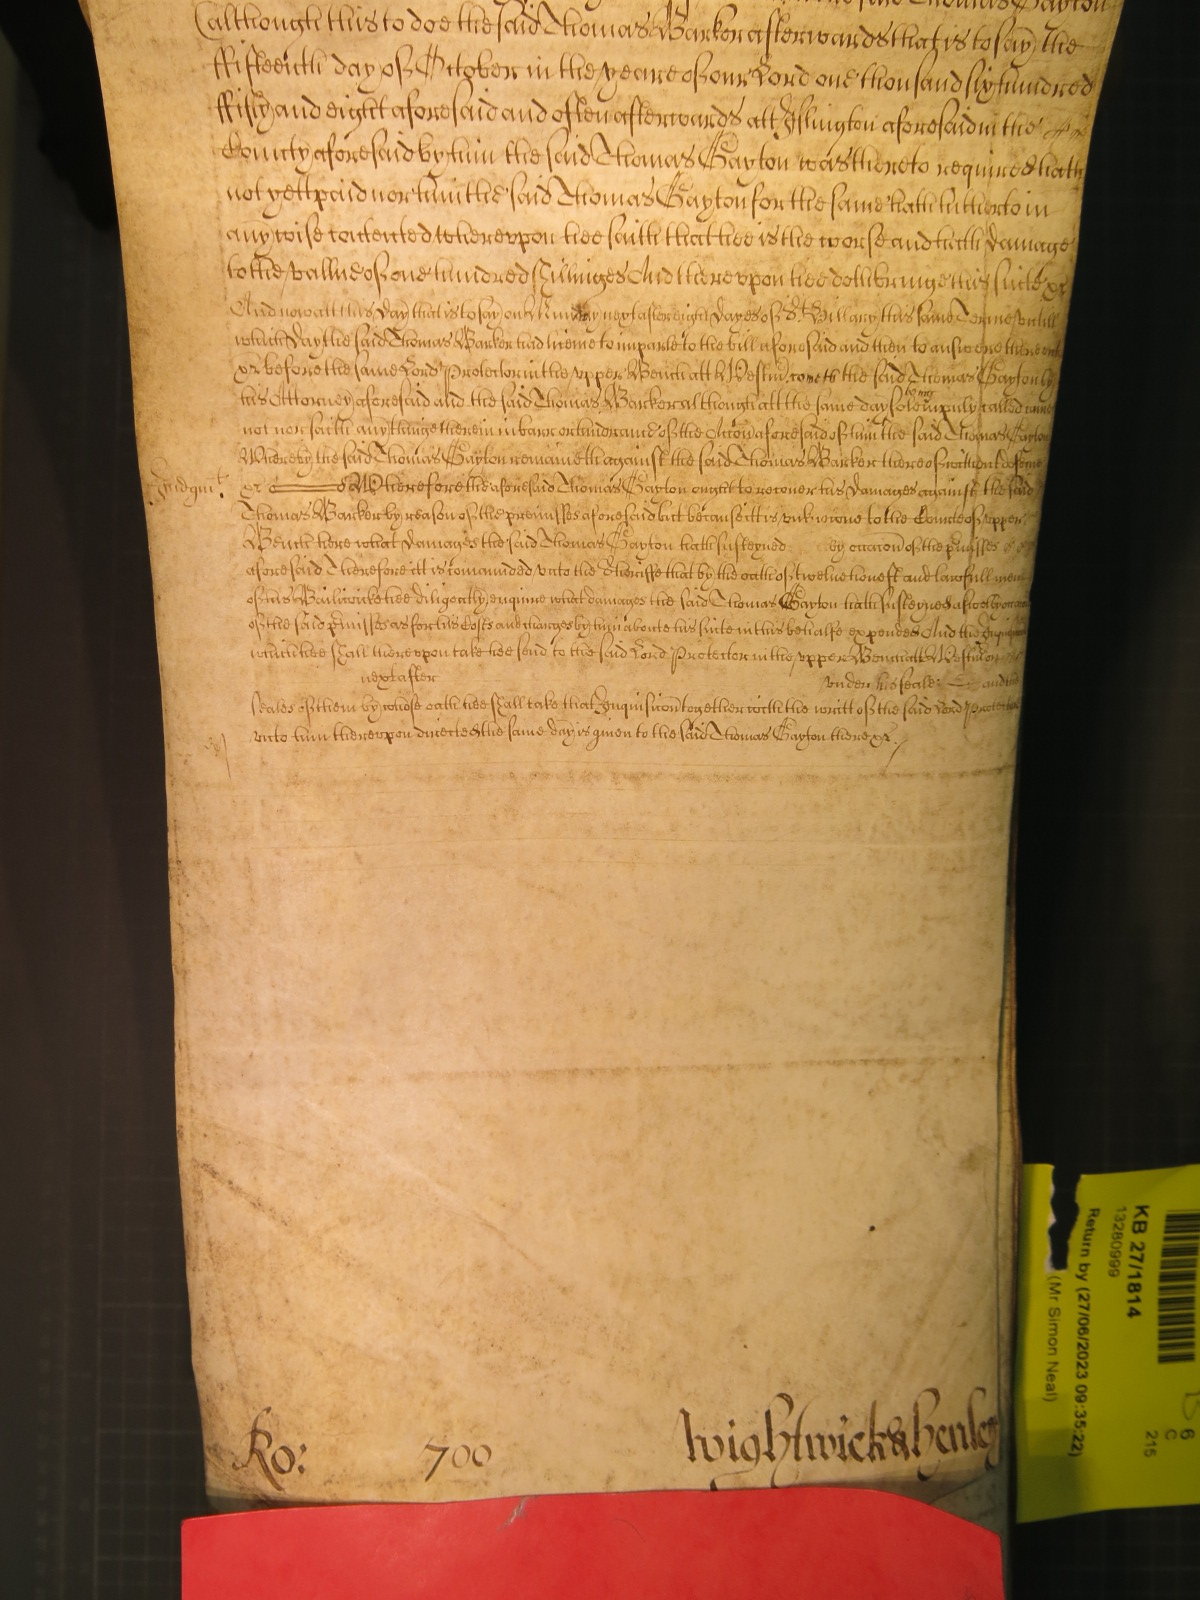 said Thomas Gayton
(although this to doe the said Thomas Barker afterwards that is to say the
ffifteenth day of October in the yeare of our Lord one thousand six hundred
ffifty and eight aforesaid and often afterwards att Islington aforesaid in the
County aforesaid by him the said Thomas Gayton was thereto required hath
not yett paid nor him the said Thomas Gayton for the same hath hitherto in
any wise contented Whereupon hee saith that hee is the worse and hath Damage
to the vallue of one hundred Shillinges And thereupon hee doth bringe this suite &c
And now att this Day that is to say on next after eight Dayes of St. Hillary this same Terme untill
which Day the said Thomas Barker had licence to imparle to the bill aforesaid and then to answere thereunto
&c before the same Lord Protector in the upper Bench att Westm. cometh the said Thomas Gayton by
his Attorney aforesaid and the said Thomas Barker although att the same day solempnly called came
not nor saith any thinge therein in barr or hindrance of the Accon aforesaid of him the said Thomas Gayton
Whereby the said Thomas Gayton remaineth against the said Thomas Barker thereof without defence
Judgmt. &c Wherefore the aforesaid Thomas Gayton ought to recover his Damages against the said
Thomas Barker by reason of the premisses aforesaid but because itt is unknowne to the Courte of upper
Bench here what Damages the said Thomas Gayton hath susteyned by occacon of the pmisses
aforesaid Therefore itt is comaunded unto the Sheriffe that by the oath of twelve honest and lawfull men
of his Bailiwicke hee diligently enquire what damages the said Thomas Gayton hath susteyned aswell by
of the said pmisses as for his Costs and charges by him aboute his suite in this behalfe expended And the
which hee shall thereupon take hee send to the said Lord Protector in the upper Bench att Westm on
next after under his seale &c and the
seales of them by whose oath hee shall take that Inquisicon together with the writt of the said Lord Protector
unto him thereupon directed the same day is given to the said Thomas Gayton there &c.
Ro: 700 Wightwick & henley
KB 27/1814
13280999
Return by (27/06/2023 09:35:22)
(Mr Simon Neal)
6
C
215